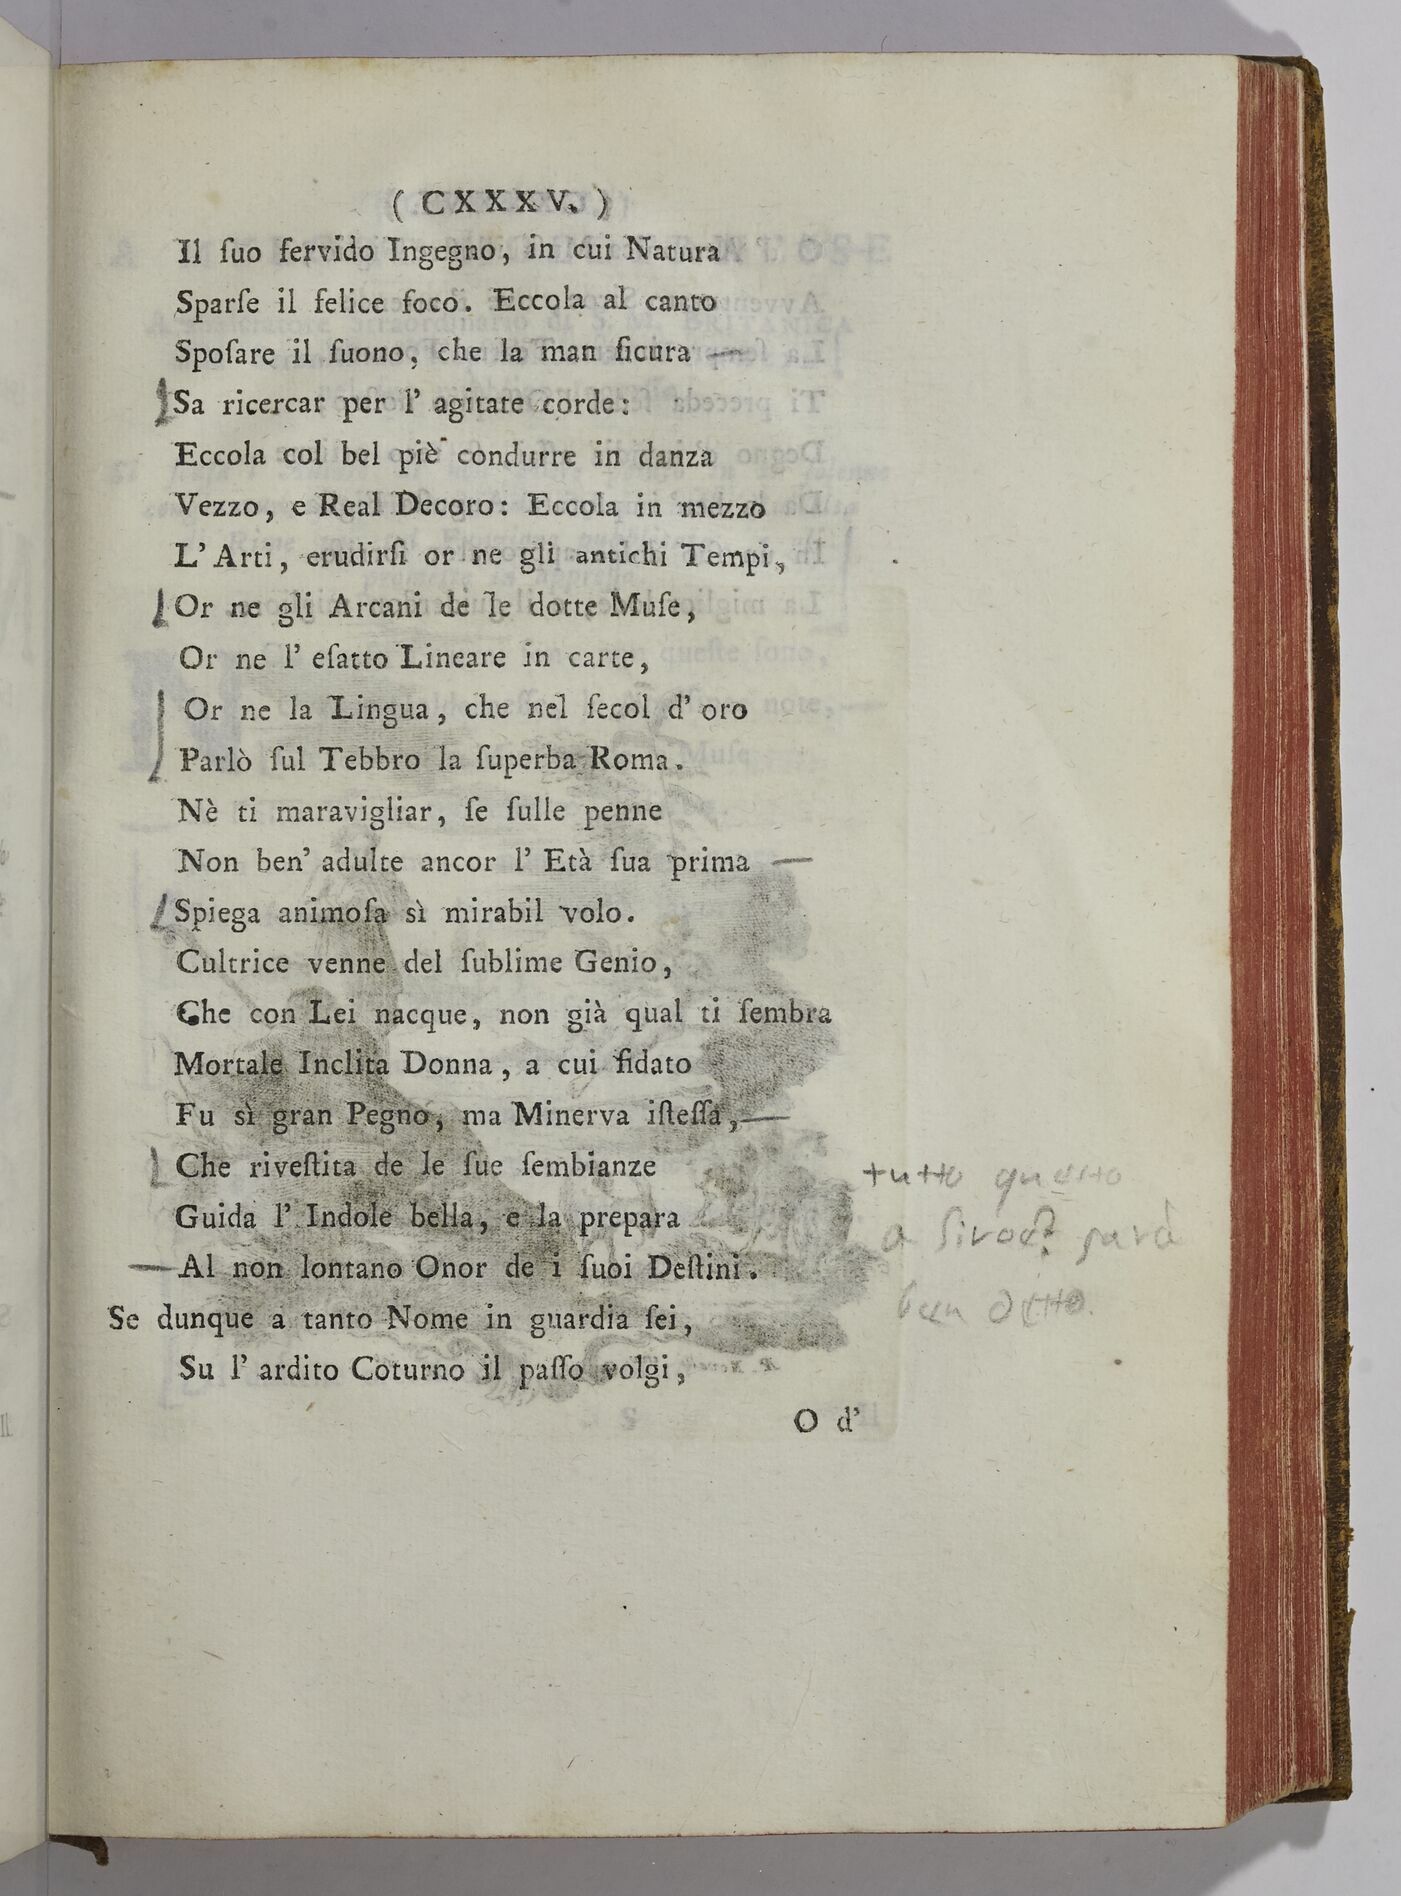 ( CXXXV. )
Il ſuo fervido Ingegno, in cui Natura
Sparſe il felice foco. Eccola al canto
Spoſare il ſuono, che la man ſicura
Sa ricercar per l' agitate corde:
Eccola col bel piè condurre in danza
Vezzo, e Real Decoro: Eccola in mezzo
L' Arti, erudirſi or ne gli antichi Tempi,
Or ne gli Arcani de le dotte Muſe,
Or ne l' eſatto Lineare in carte,
Or ne la Lingua, che nel ſecol d' oro
Parlò ſul Tebbro la ſuperba Roma.
Nè ti maravigliar, ſe ſulle penne
Non ben' adulte ancor l' Età ſua prima
Spiega animoſa sì mirabil volo.
Cultrice venne del ſublime Genio,
Che con Lei nacque, non già qual ti ſembra
Mortale Inclita Donna, a cui fidato
Fu sì gran Pegno, ma Minerva iſteſſa,
Che riveſtita de le ſue ſembianze
tutto questo
Guida l' Indole bella, e la prepara
Al non lontano Onor de i ſuoi Deſtini.
ben ditto.
Se dunque a tanto Nome in guardia ſei,
Su l' ardito Coturno il paſſo volgi,
O d'